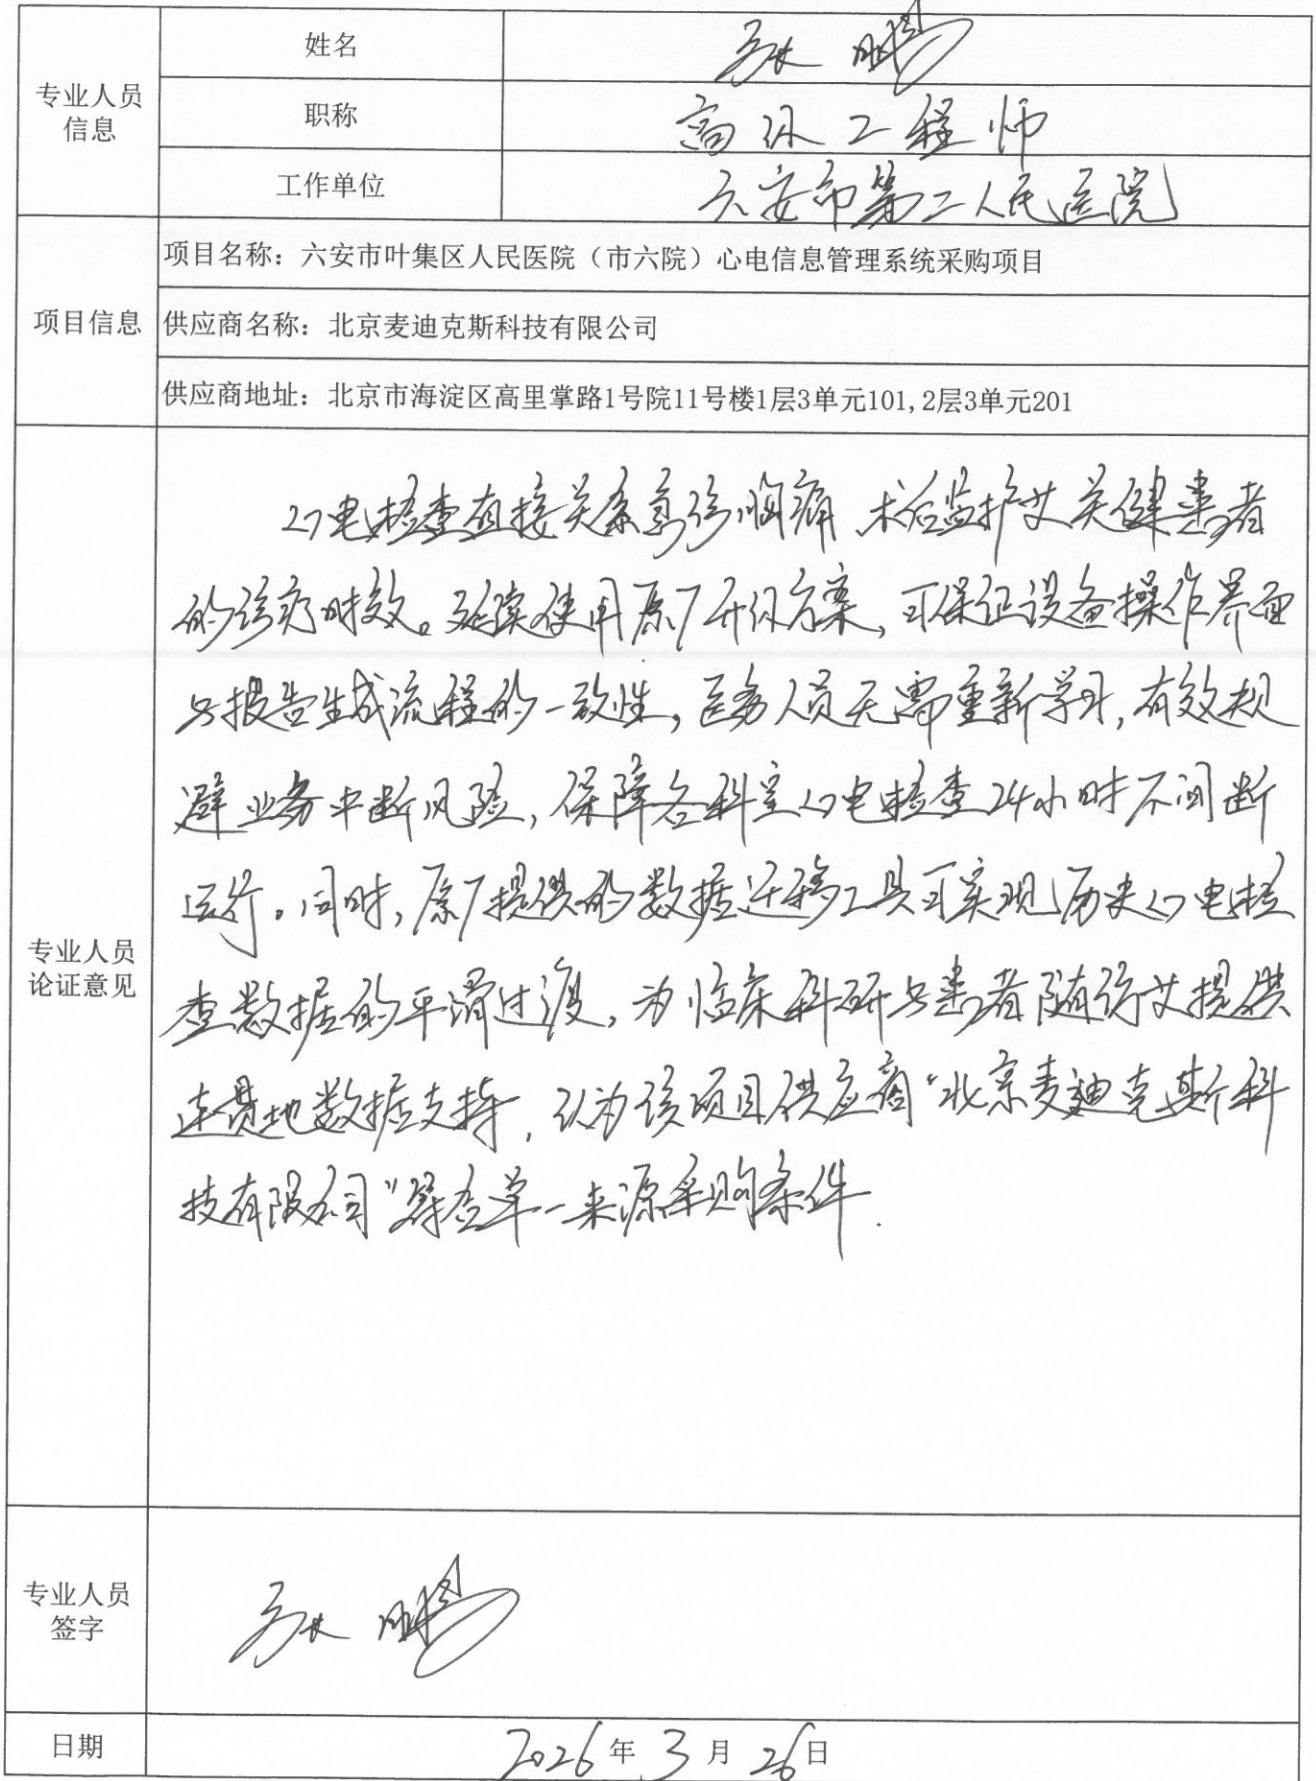 姓名 张鹏
专业人员
信息
职称 高级工程师
工作单位 六安市第二人民医院
项目名称：六安市叶集区人民医院（市六院）心电信息管理系统采购项目
项目信息
供应商名称：北京麦迪克斯科技有限公司
供应商地址：北京市海淀区高里掌路1号院11号楼1层3单元101,2层3单元201
心电检查直接关系急诊胸痛 术后监护等关键患者
的诊疗时效。延续使用原厂升级方案，可保证设备操作界面
与报告生成流程的一致性，医务人员无需重新学习，有效规
避业务中断风险，保障各科室心电检查24小时不间断
运行。同时，原厂提供的数据迁移工具可实现历史心电检
查数据的平滑过渡，为临床科研与患者随访等提供
连贯地数据支持，认为该项目供应商“北京麦迪克斯科
技有限公司”符合单一来源采购条件.
专业人员
论证意见
专业人员
签字
张鹏
日期 2026年3月26日